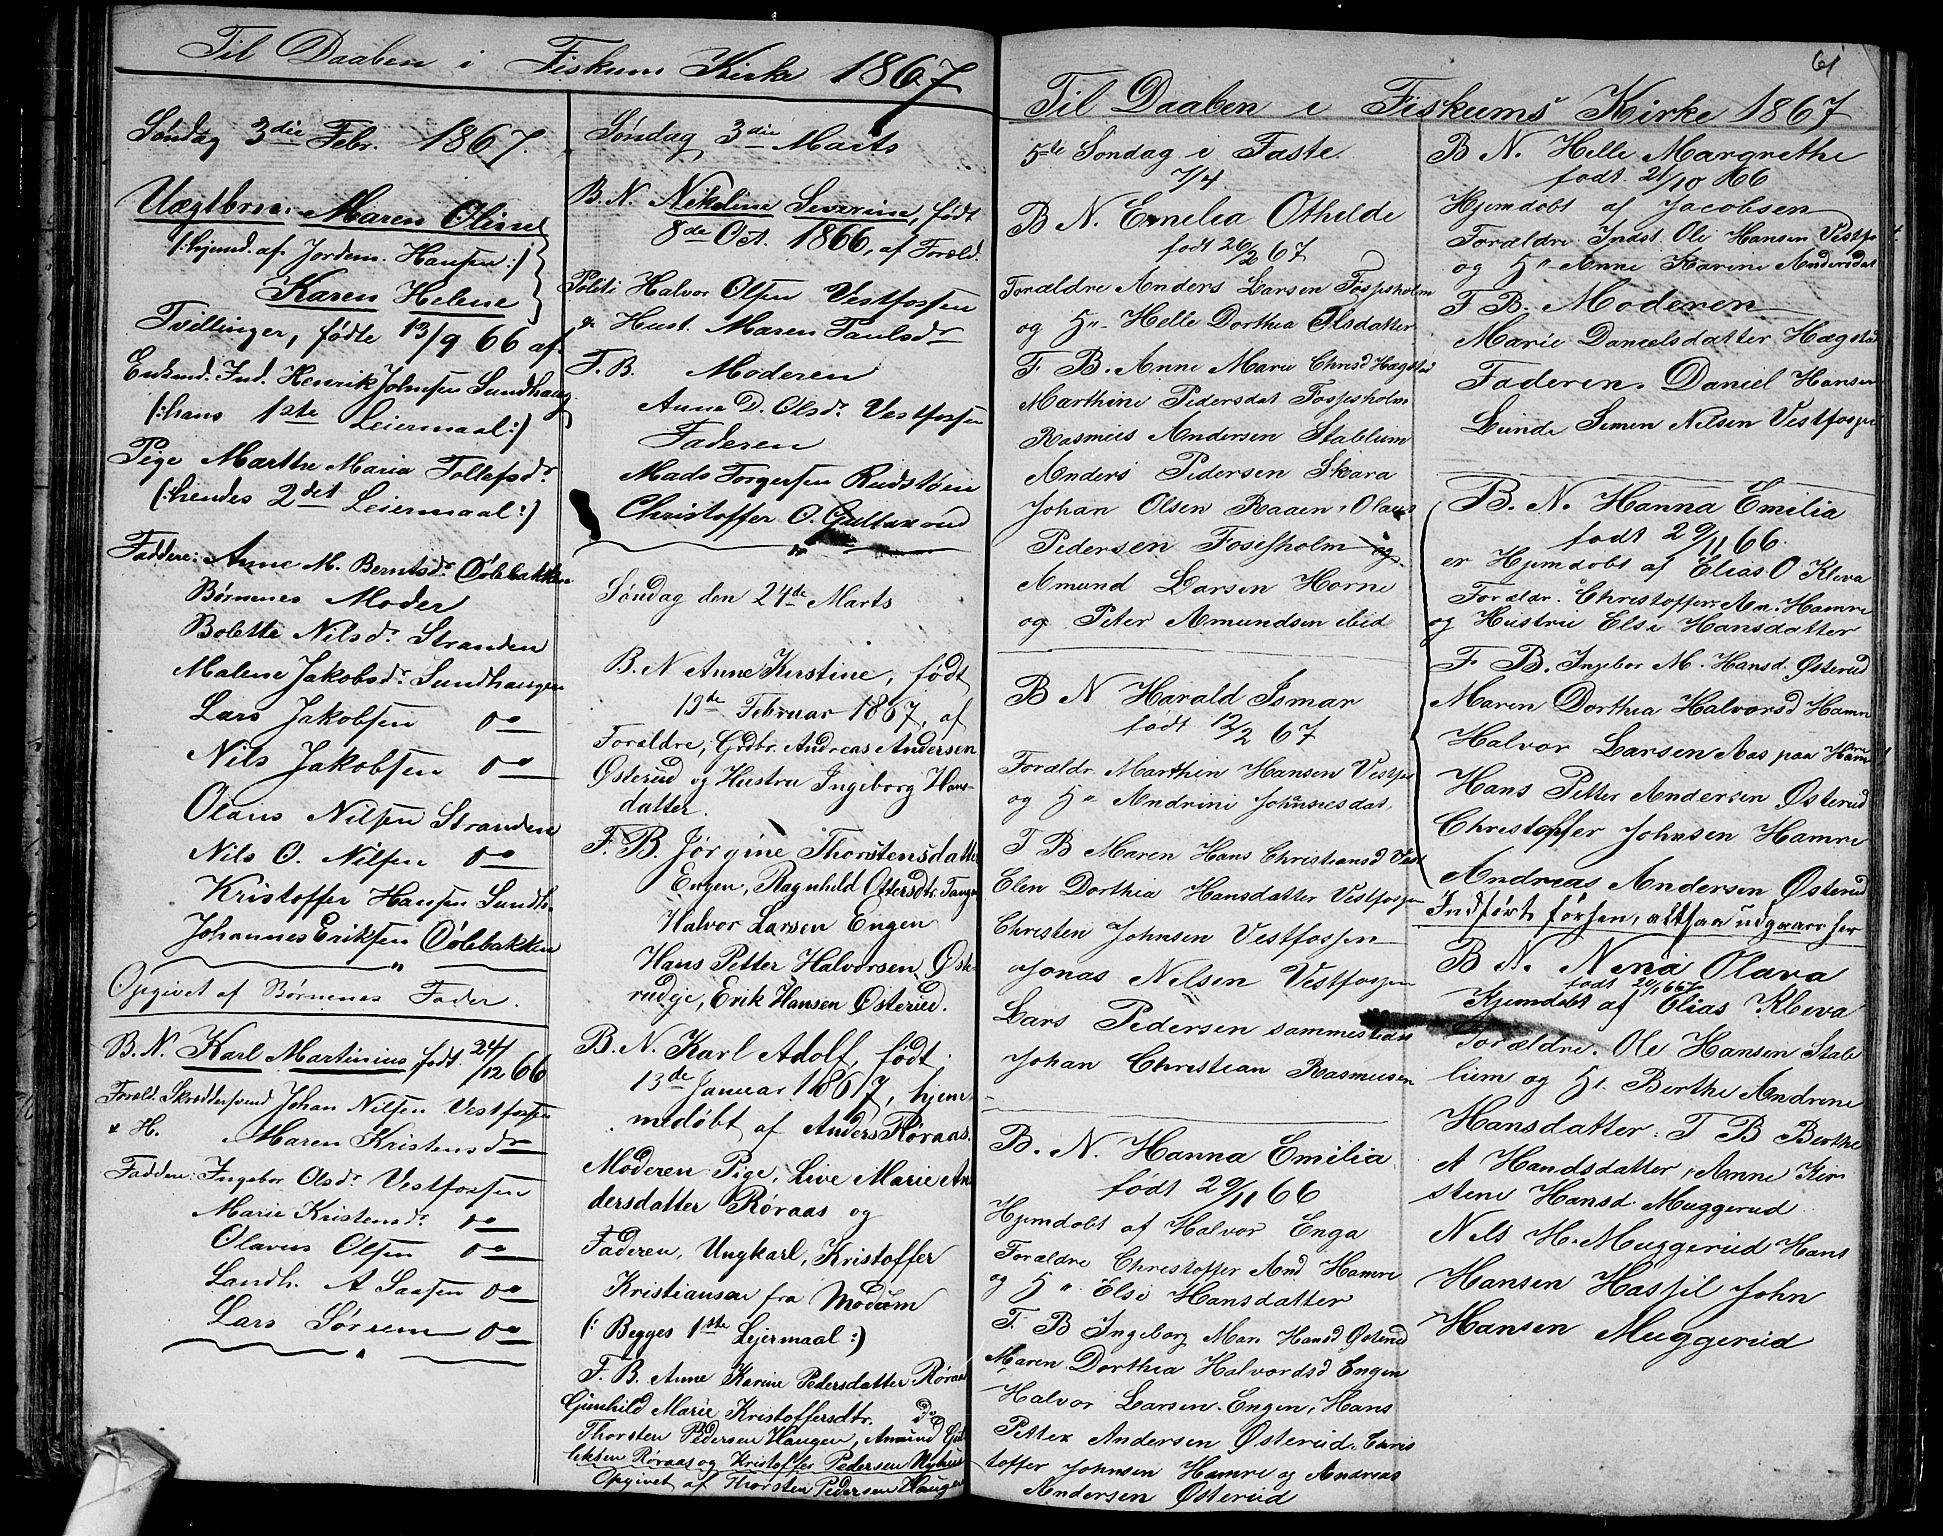 Til Daaben i Fiskum Kirke 1867
Søndag 3die Febr. 1867.
Uægtbrn: Maren Oline
(:hjemd. af Jordem. Hansen:)
Karen Helene
Tvillinger, fødte 13/9 66 af
Enkmd. Ind. Henrik Johnsen Sundhaug
(:hans 1ste Leiermaal:)
Pige Marthe Maria Tollefsdr
(:hendes 2det Leiermaal:)
Faddere: Anne M. Berntsdr. Dølebakken
Børnenes Moder
Bolette Nilsdr. Stranden
Malene Jakobsdr. Sundhaugen
Lars Jakobsen do
Nils Jakobsen do
Olaus Nilsen Stranden
Nils O. Nilsen do
Kristoffer Hansen Sundh.
Johannes Eriksen Dølebakken
Opgivet af Børnenes Fader.
B. N. Karl Martinius, født 24/12 66
Foræld. Skræddersvend Johan Nilsen Vestfossen
& H. Maren Kristensdr
Faddere: Ingebor Olsdr. Vestfossen
Marie Kristensdr. do
Olavus Olsen do
Landh. A Saasen do
Lars Sørsem do
Søndag 3die Marts
B. N. Nikoline Severine, født
8de Oct. 1866, af Foræld.
Politi Halvor Olsen Vestfossen
& Hust. Maren Paulsdr
F. B. Moderen
Anne D. Olsdr. Vestfossen
Faderen
Mads Torgersen Rudstøen
Christoffer O.
Søndag den 24de Marts
B. N Anne Kirstine, født
13de Februar 1867, af
Forældre, Grdbr. Andreas Andersen
Østerud og Hustru Ingeborg Hans-
datter.
F. B. Jørgine Thorstensdatter
Engen, Ragnhild Ottersdtr. Tangen
Halvor Larsen Engen
Hans Petter Halvorsen Øst-
rudeje, Erik Hansen Østerud.
B. N. Karl Adolf, født
13de Januar 1867, hjem-
medøbt af Anders Røraas.
Moderen Pige, Live Marie An-
dersdatter Røraas og
Faderen, Ungkarl, Kristoffer
Kristiansen fra Modum
(: Begges 1ste Lejermaal :)
F. B. Anne Karine Pedersdatter Røraas
Gunhild Marie Kristoffersdtr. do
Thorsten Pedersen Haugen, Amund Gul-
liksen Røraas og Kristoffer Pedersen Nyhus
Opgivet af Thorsten Pedersen Haugen
61
Til Daaben i Fiskums Kirke 1867
5te Søndag i Faste
7/4.
B N. Emelia Othilde
født 26/2 67
Forældre Anders Larsen Fossesholm
og H" Helle Dorthea Olsdatter
F B. Anne Marie Chrisd Hægstad
Marthine Pedersdat Fossesholm
Rasmus Andersen Stablum
Anders Pedersen Skara
Johan Olsen Raaen, Olaus
Pedersen Fosesholm og
Amund Larsen Horne
og Peter Amundsen ibid
B N Harald Ismar
født 12/2 67
Forældr. Marthin Hansen Vestfos
og H" Andrine Johannesdat
F B Maren Hans Christiansd Vest
Elen Dorthia Hansdatter Vestfossen
Christen Johnsen Vestfossen
Jonas Nelsen Vestfossen
Lars Pedersen sammestæn
Johan Christian Rasmusen
B. N. Hanna Emilia
født 29/11 66
Hjemdøbt af Halvor Enga
Forældre Christoffer And Hamre
og H" Elsi Hansdatter
F. B Ingeborg Mari Hansd Østerud
Maren Dorthia Halvordsd Engen
Halvor Larsen Engen, Hans
Petter Andersen Østerud. Chris
toffer Johnsen Hamre og Andreas
Andersen Østerud
B N. Helle Margrethe
født 21/10 66
Hjemdøbt af Jacobsen
Forældre Indst Ole Hansen Vestfo
og H" Anne Karine Andersdat
F B. Moderen
Marie Danielsdatter Hægstad
Faderen. Daniel Hansen
Lunde Simen Nilsen Vestfosse
B. N. Hanna Emilia
født 29/11 66.
er Hjemdøbt af Elias O Kleva
Forældr. Christoffer An. Hamre
og Hustru Elsi Hansdatter
F. B. Ingebor M. Hansd. Østerud
Maren Dorthea Halvorsd Hamre
Halvor Larsen Aas paa Hamre
Hans Petter Andersen Østerud
Christoffer Johnsen Hamre
Andreas Andersen Østerud
Indført førhen, altsaa udgaar her
B N. Nena Olava
født 20/1 667
Hjemdøbt af Elias Kleva
Forældre. Ole Hansen Stab
lum og H. Berthe Andrine
Hansdatter. F B Berthe
A Handsdatter, Anne Kir-
stene Hansd Muggerud
Nels H. Muggerud Hans
Hansen Hassil John
Hansen Muggerud